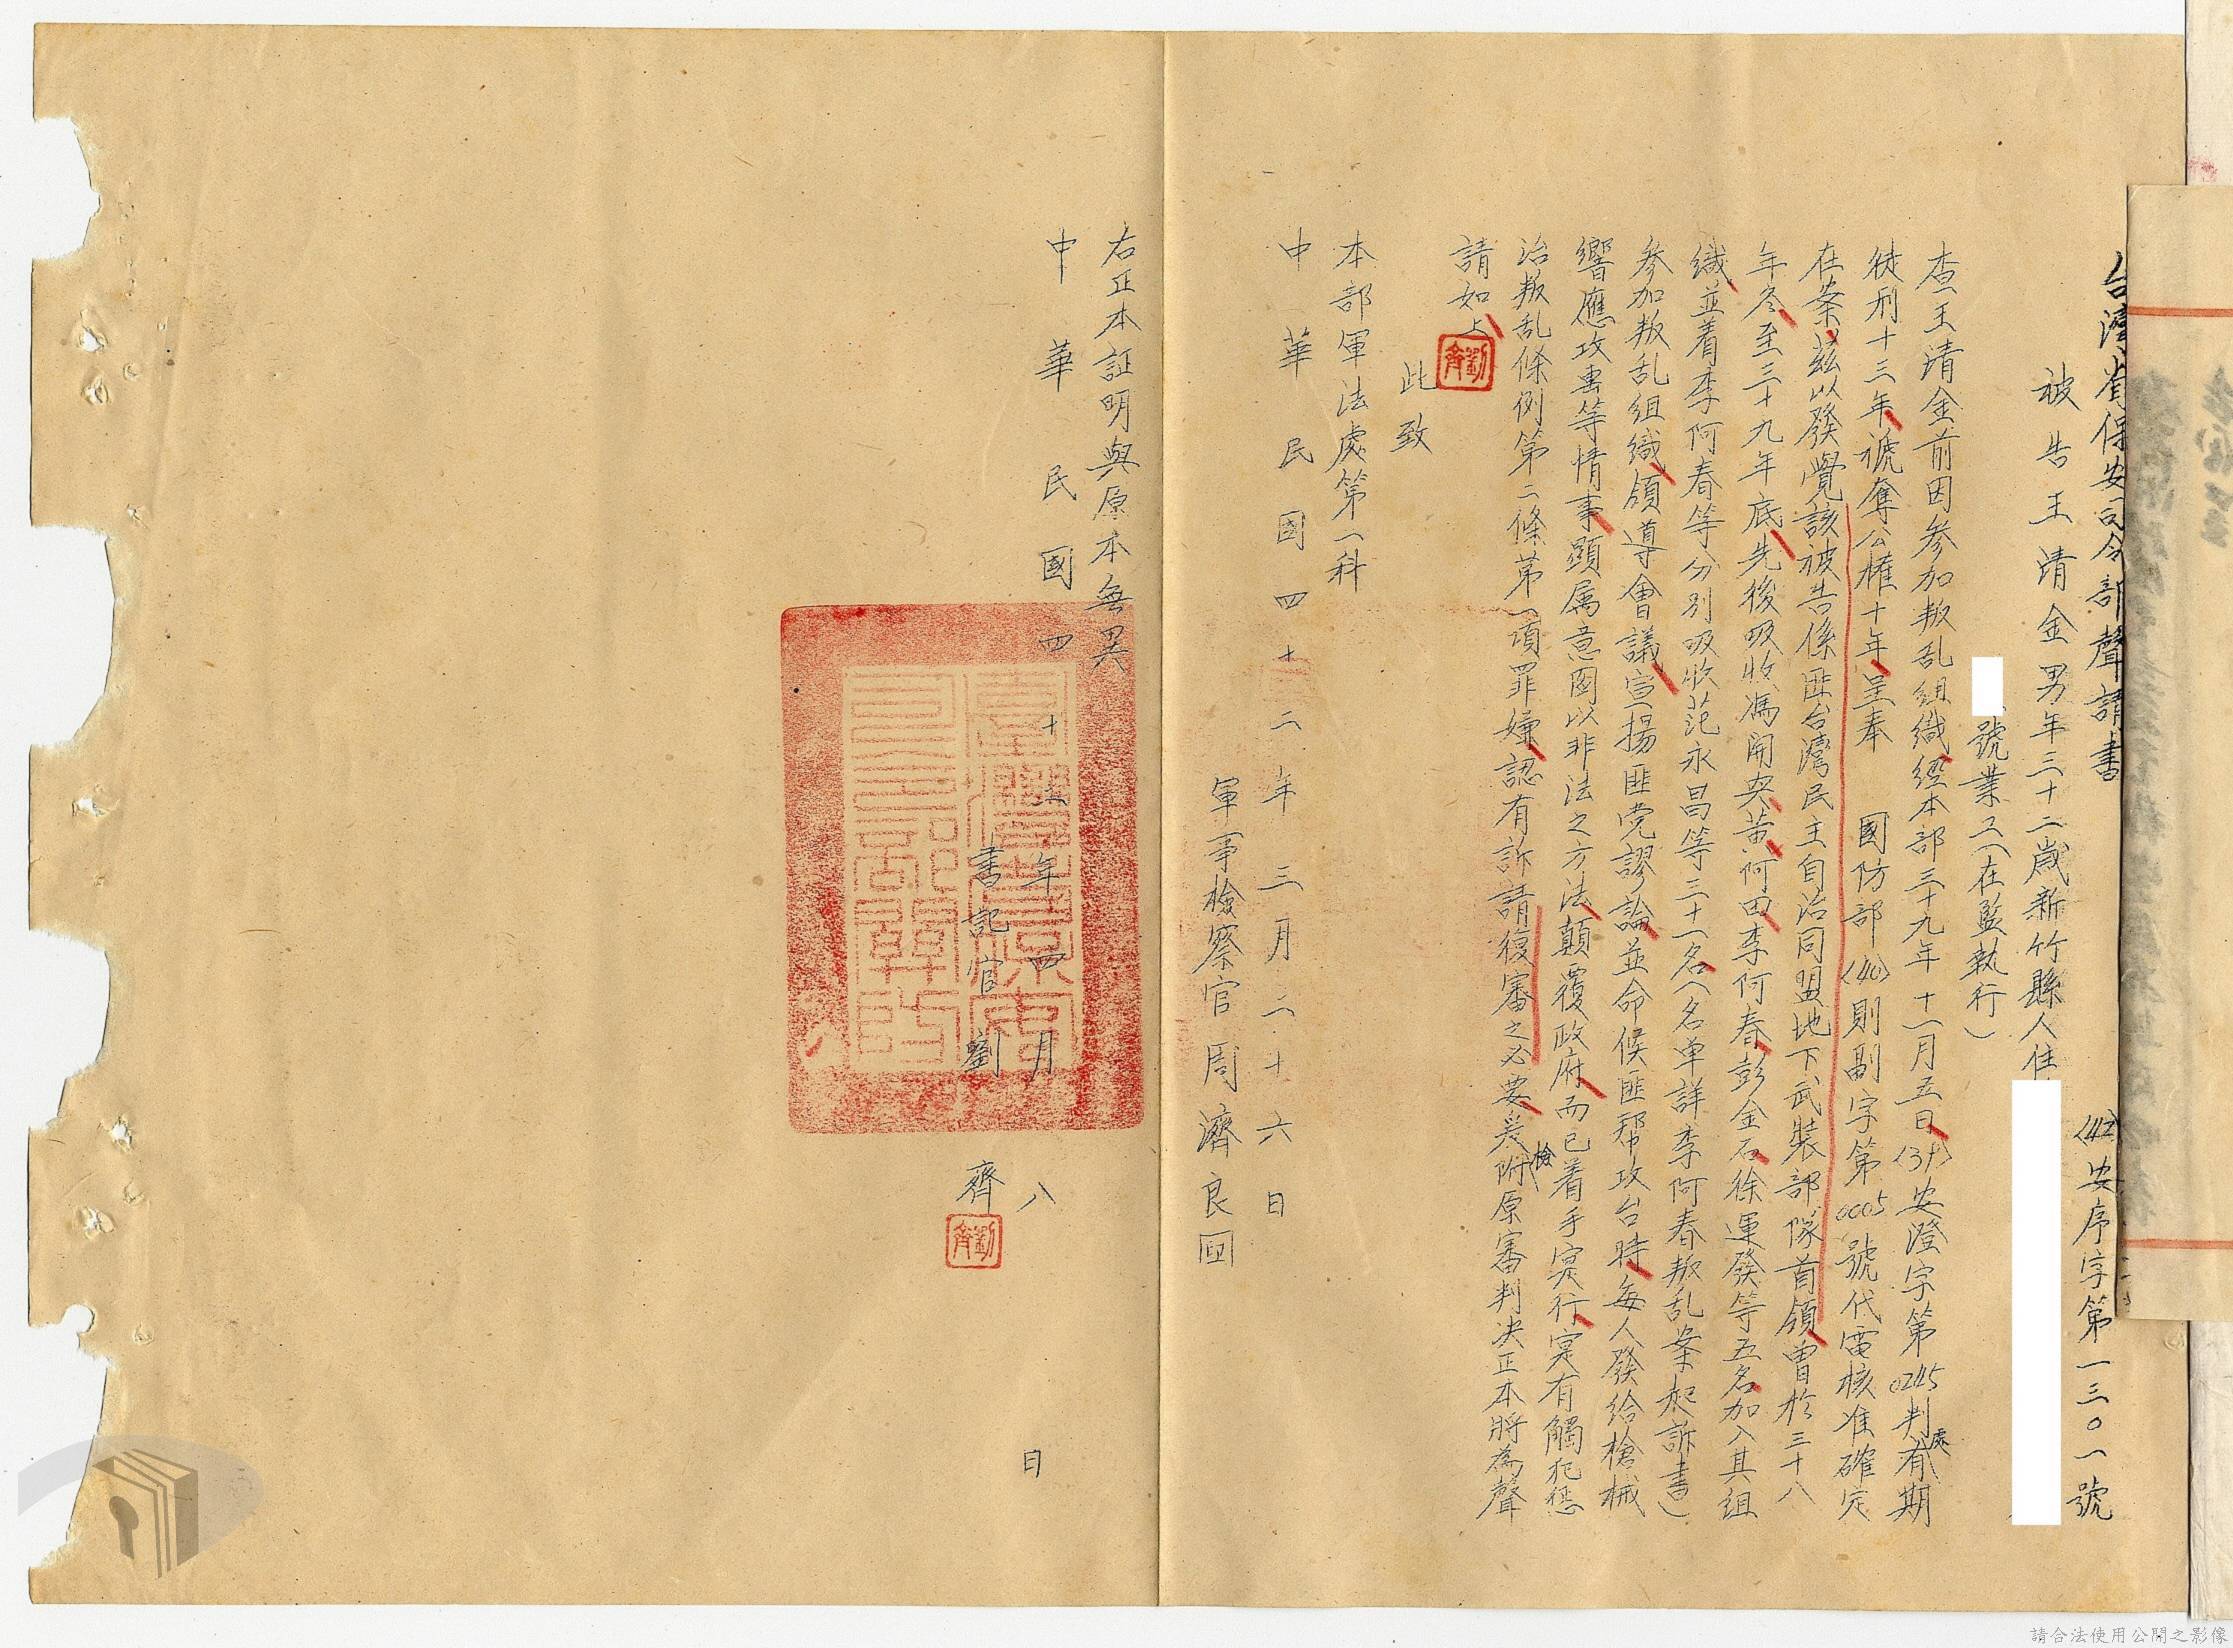 台灣省保安司令部聲請書
(42)安序字第一三〇一號
被告王清金男年三十二歲新竹縣人住
號業工(在監執行)
查王清金前因參加叛乱組織經本部三十九年十一月五日(39)安澄字第0245判處有期
徒刑十三年褫奪公權十年呈奉 國防部(40)則副字第0005號代電核准確定
在案茲以發覺該被告係匪台灣民主自治同盟地下武裝部隊首領曾於三十八
年冬至三十九年底先後吸收馮開央黃阿田李阿春彭金石徐運發等五名加入其組
織並着李阿春等分別吸收范永昌等三十一名(名单詳李阿春叛乱案起訴書)
參加叛乱組織領導會議宣揚匪党謬論並命候匪幫攻台時每人發給槍械
響應攻擊等情事顯属意圖以非法之方法顛覆政府而已着手实行实有觸犯惩
治叛乱條例第二條第一項罪嫌認有訴請復審之必要爰檢附原審判决正本將為聲
請如上
劉齊
此致
本部軍法處第一科
中華民國四十二年三月二十六日
軍事檢察官周濟良印
右正本証明與原本無異
中華民國四十 年四月八日
書記官劉齊
劉齊
請合法使用公開之影像